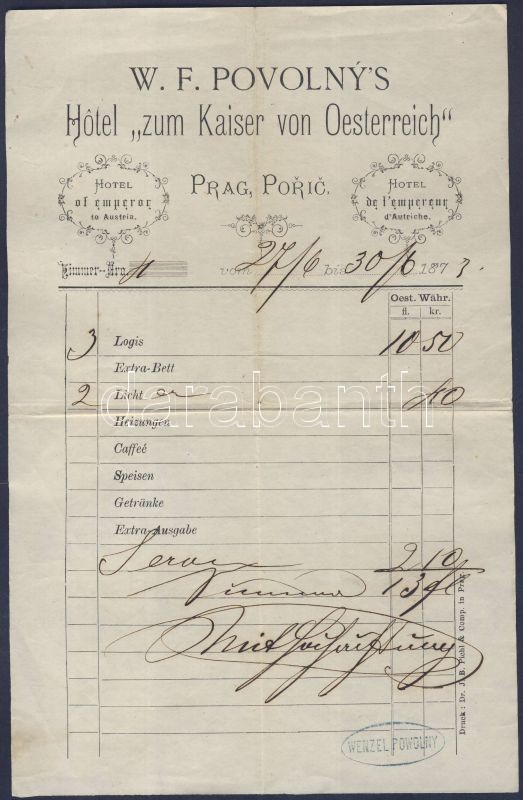 W. F. POVOLNÝ'S
Hôtel „zum Kaiser von Oesterreich"
HOTEL
of emperor
to Austria.
PRAG, POŘIČ.
HOTEL
de l'empereur
d'Autriche.
Zimmer-Nro.
vom 27/6 bis 30/6 1873.
Oest. Währ.
fl. kr.
3 Logis 10 50
Extra-Bett
2 Licht 40
Heizungen
Caffeé
Speisen
Getränke
Extra-Ausgabe
Servix 2 10
Summa 13
Mit Hochachtung
Druck: Dr. J. B. Pichl & Comp. in Prag.
WENZEL POWOLNY
darabanth